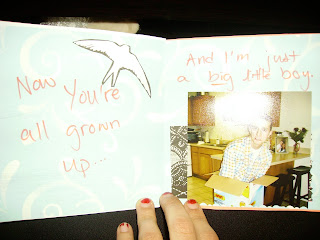 Now You're
all grown
up...
And I'm just
a big little boy.